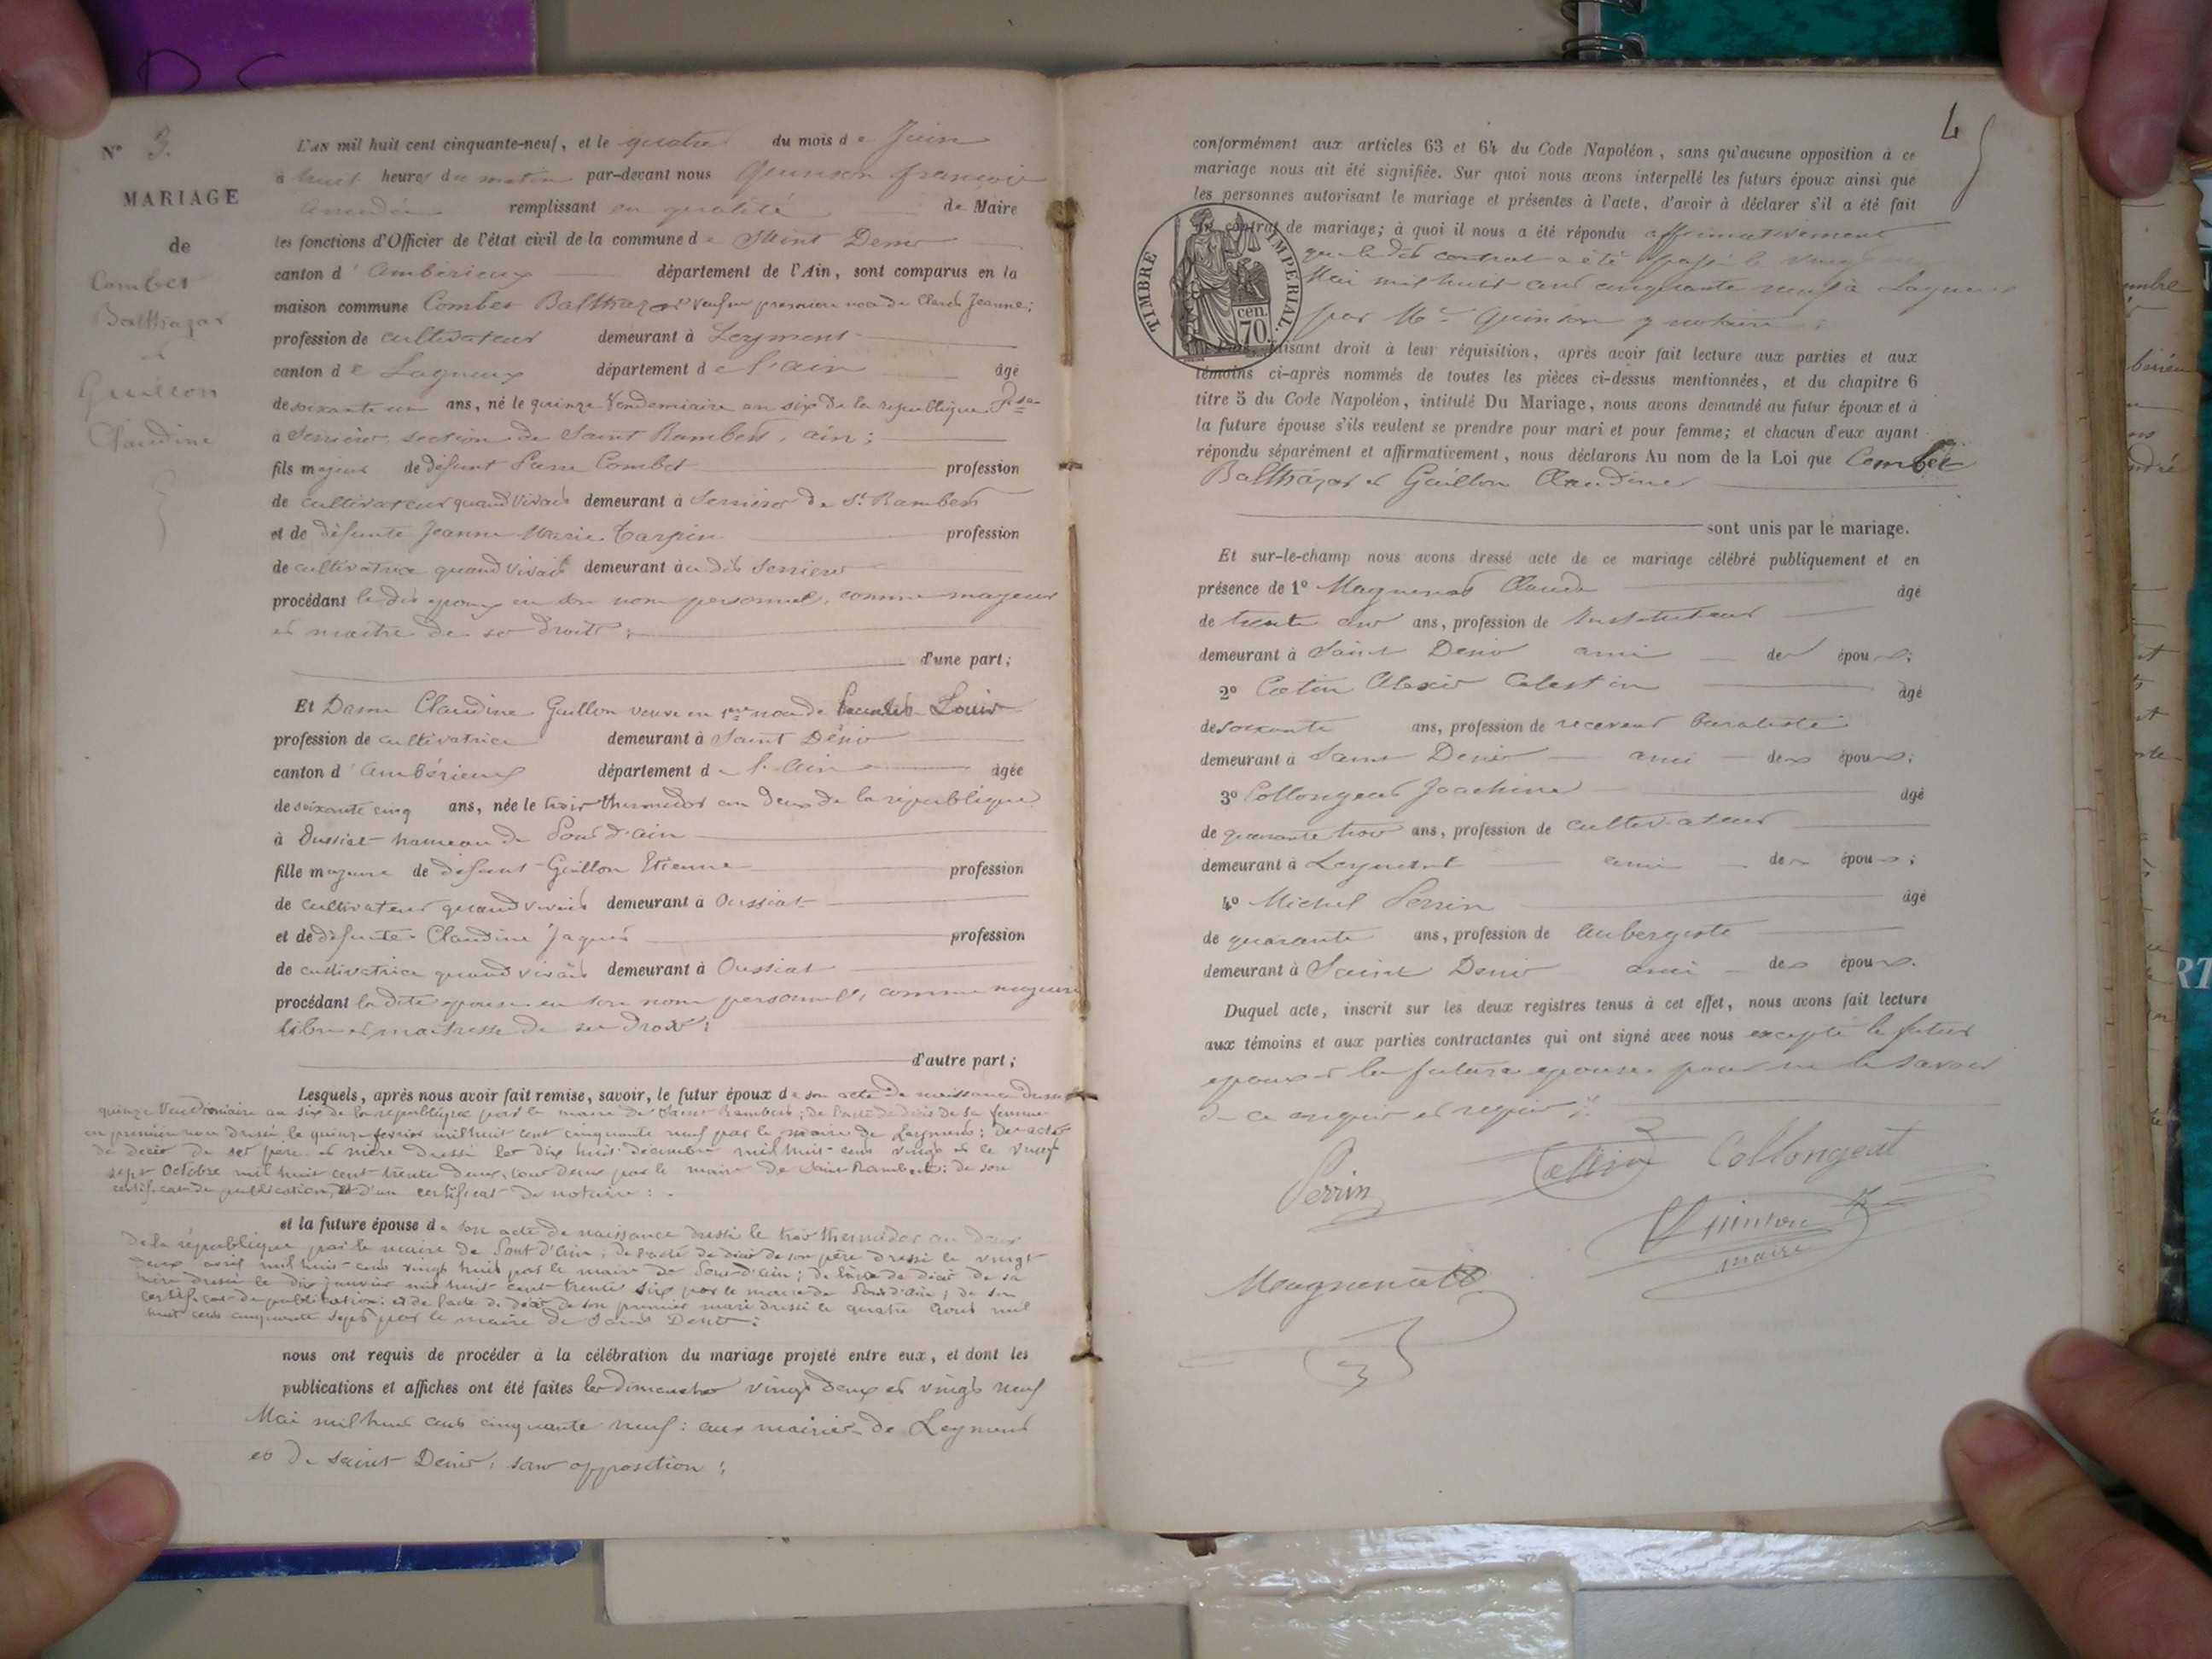 N° 3.
MARIAGE
de
Combet
Balthazar
et
Guillon
Claudine
L'AN mil huit cent cinquante-neuf, et le quatre du mois de Juin
à huit heures du matin par-devant nous Quinson françois
Amédée remplissant en qualité de Maire
les fonctions d'Officier de l'état civil de la commune de Saint Denis
canton d' Ambérieux département de l'Ain, sont comparus en la
maison commune Combet Balthazar veuf en premiere noce de Claude Jeanne;
profession de cultivateur demeurant à Leyment
canton de Lagnieux département de l'ain âgé
de soixante un ans, né le quinze Vendemiaire an six de la republique
à Serrières section de Saint Rambert, ain;
fils majeur de défunt Combet profession
de cultivateur quand vivait demeurant à Serrières de St Rambert
et de défunte Jeanne Marie Tarpin profession
de cultivatrice quand vivait demeurant au dit Serrières
procédant le dit epoux en son nom personnel, comme majeur
et maitre de ses droits;
d'une part;
Et Dame Claudine Guillon veuve en 1ere noce de Louis
profession de cultivatrice demeurant à Saint Dénis
canton d' Ambérieux département de l'Ain âgée
de soixante cinq ans, née le trois thermidor an deux de la république
à Oussiat hameau de Pont d'ain
fille majeure de défunt Guillon Etienne profession
de cultivateur quand vivait demeurant à Oussiat
et de défunte Claudine Jaquet profession
de cultivatrice quand vivait demeurant à Oussiat
procédant la dite epouse en son nom personnel, comme majeure
libre et maitresse de ses droits;
d'autre part;
Lesquels, après nous avoir fait remise, savoir, le futur époux de son acte de naissance dressé
quinze Vendémiaire an six de la république par le maire de Saint Rambert; de l'acte de décès de sa femme
en première noce dressé le quinze fevrier mil huit cent cinquante neuf par le maire de Leyment; des actes
de décès de ses père et mère dressé les dix huit décembre mil huit cent vingt et le vingt
sept Octobre mil huit cent trente deux, tous deux par le maire de Saint Rambert; de son
certificat de publication, et d'un certificat de notaire:
et la future épouse de son acte de naissance dressé le trois thermidor an deux
de la république par le maire de Pont d'Ain; de l'acte de décès de son père dressé le vingt
deux avril mil huit cent vingt huit par le maire de Pont d'Ain; de l'acte de décès de sa
mère dressé le dix janvier mil huit cent trente six par le maire de Pont d'Ain; de son
certificat de publication: et de l'acte de décès de son premier mari dressé le quatre Aout mil
huit cent cinquante sept par le maire de Saint Denis:
nous ont requis de procéder à la célébration du mariage projeté entre eux, et dont les
publications et affiches ont été faites les dimanches vingt deux et vingt neuf
Mai mil huit cent cinquante neuf: aux mairies de Leyment
et de saint Denis, sans opposition;
4
conformément aux articles 63 et 64 du Code Napoléon, sans qu'aucune opposition à ce
mariage nous ait été signifiée. Sur quoi nous avons interpellé les futurs époux ainsi que
les personnes autorisant le mariage et présentes à l'acte, d'avoir à déclarer s'il a été fait
contrat de mariage; à quoi il nous a été répondu affirmativement
que le dit contrat a été passé le vingt
Mai mil huit cent cinquante neuf à Lagnieux
par Me Quinson notaire;
TIMBRE IMPÉRIAL.
70 cen.
faisant droit à leur réquisition, après avoir fait lecture aux parties et aux
témoins ci-après nommés de toutes les pièces ci-dessus mentionnées, et du chapitre 6
titre 5 du Code Napoléon, intitulé Du Mariage, nous avons demandé au futur époux et à
la future épouse s'ils veulent se prendre pour mari et pour femme; et chacun d'eux ayant
répondu séparément et affirmativement, nous déclarons Au nom de la Loi que Combet
Balthazar et Guillon Claudine
sont unis par le mariage.
Et sur-le-champ nous avons dressé acte de ce mariage célébré publiquement et en
présence de 1° Magnenat Claude âgé
de trente ans, profession de Instituteur
demeurant à Saint Denis ami des époux;
2° Cottin Alexis Celestin âgé
de soixante ans, profession de receveur buraliste
demeurant à Saint Denis ami des époux;
3° Collongeat Joachim âgé
de quarante trois ans, profession de cultivateur
demeurant à Leyment ami des époux;
4° Michel Perrin âgé
de quarante ans, profession de Aubergiste
demeurant à Saint Denis ami des époux.
Duquel acte, inscrit sur les deux registres tenus à cet effet, nous avons fait lecture
aux témoins et aux parties contractantes qui ont signé avec nous excepté le futur
epoux et la future epouse pour ne le savoir
de ce enquis et requis
Perrin Cottin Collongeat
Quinson
maire
Magnenat